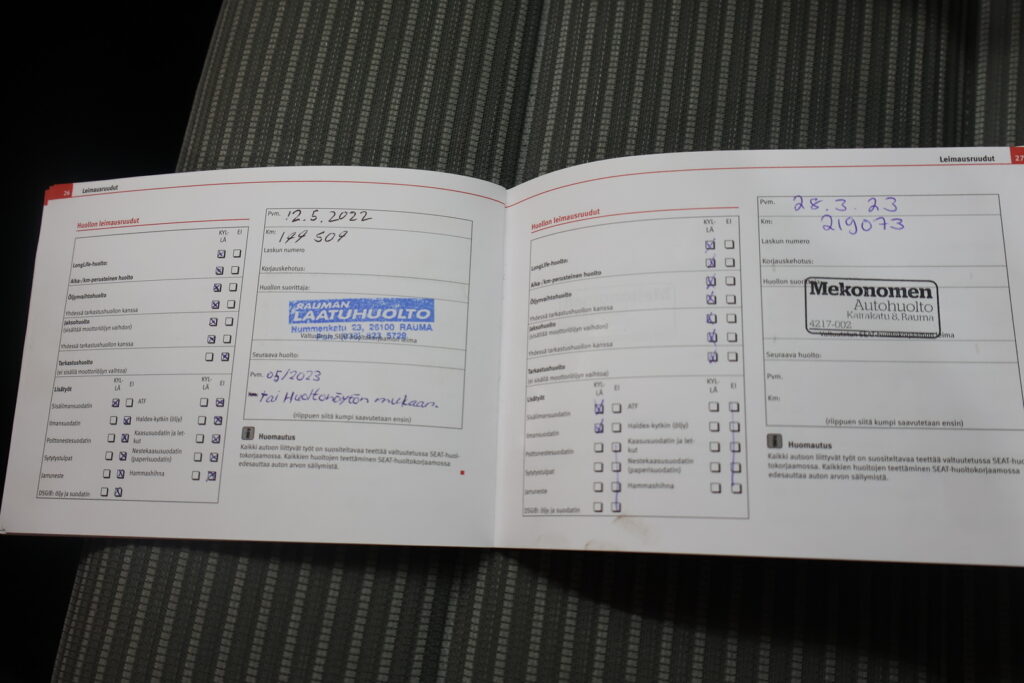 26 Leimausruudut
Huollon leimausruudut
KYL-LÄ EI
LongLife-huolto:
Aika-/km-perusteinen huolto
Öljynvaihtohuolto
Yhdessä tarkastushuollon kanssa
Jaksohuolto
(sisältää moottoriöljyn vaihdon)
Yhdessä tarkastushuollon kanssa
Tarkastushuolto
(ei sisällä moottoriöljyn vaihtoa)
Lisätyöt KYL-LÄ EI KYL-LÄ EI
Sisäilmansuodatin ATF
Ilmansuodatin Haldex-kytkin (öljy)
Polttonestesuodatin Kaasusuodatin ja let-
kut
Sytytystulpat Nestekaasusuodatin
(paperisuodatin)
Jarruneste Hammashihna
DSG®: öljy ja suodatin
Pvm. 12.5.2022
Km: 199 509
Laskun numero
Korjauskehotus:
Huollon suorittaja:
RAUMAN
LAATUHUOLTO
Nummenkatu 23, 26100 RAUMA
Seuraava huolto:
Pvm. 05/2023
tai Huoltonäytön mukaan
(riippuen siitä kumpi saavutetaan ensin)
Huomautus
Kaikki autoon liittyvät työt on suositeltavaa teettää valtuutetussa SEAT-huol-
tokorjaamossa. Kaikkien huoltojen teettäminen SEAT-huoltokorjaamossa
edesauttaa auton arvon säilymistä.
Leimausruudut 27
Huollon leimausruudut
KYL-LÄ EI
LongLife-huolto:
Aika-/km-perusteinen huolto
Öljynvaihtohuolto
Yhdessä tarkastushuollon kanssa
Jaksohuolto
(sisältää moottoriöljyn vaihdon)
Yhdessä tarkastushuollon kanssa
Tarkastushuolto
(ei sisällä moottoriöljyn vaihtoa)
Lisätyöt KYL-LÄ EI KYL-LÄ EI
Sisäilmansuodatin ATF
Ilmansuodatin Haldex-kytkin (öljy)
Polttonestesuodatin Kaasusuodatin ja let-
kut
Sytytystulpat Nestekaasusuodatin
(paperisuodatin)
Jarruneste Hammashihna
DSG®: öljy ja suodatin
Pvm. 28.3.23
Km: 219073
Laskun numero
Korjauskehotus:
Huollon
Mekonomen
Autohuolto
Kairakatu 8, Rauma
4217-002
Seuraava huolto:
Pvm.
Km:
(riippuen siitä kumpi saavutetaan ensin)
Huomautus
Kaikki autoon liittyvät työt on suositeltavaa teettää valtuutetussa SEAT-huol-
tokorjaamossa. Kaikkien huoltojen teettäminen SEAT-huoltokorjaamossa
edesauttaa auton arvon säilymistä.